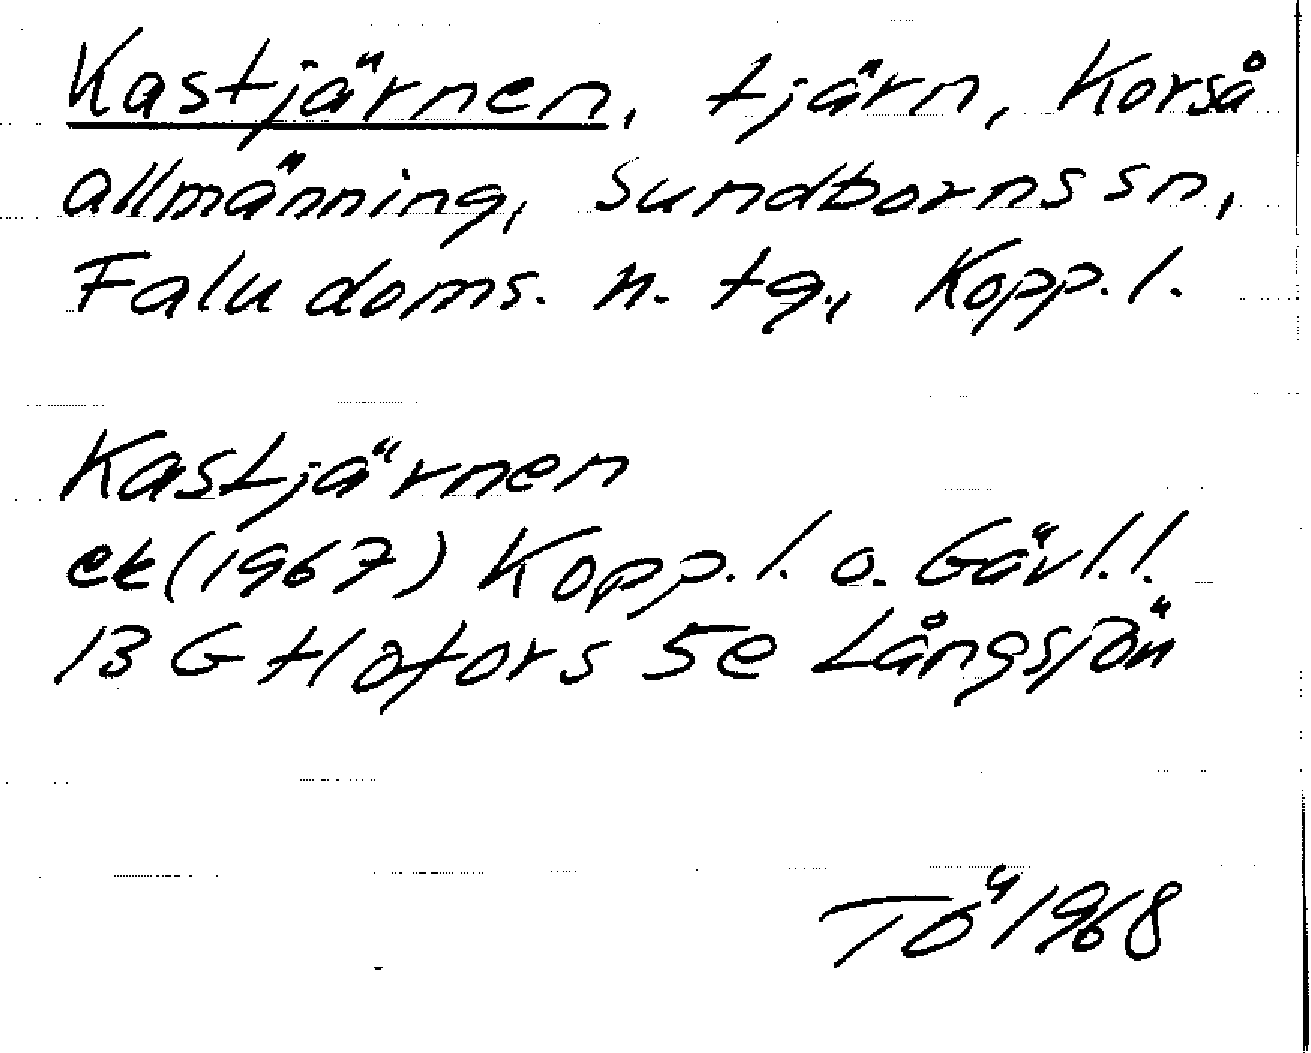 Kastjärnen, tjärn, Korså
allmänning, Sundborns sn,
Falu doms. n. tg., Kopp. l.
Kastjärnen
ek (1967) Kopp. l. o. Gävl. l.
13 G Hofors 5e Långsjön
TÖ 1968